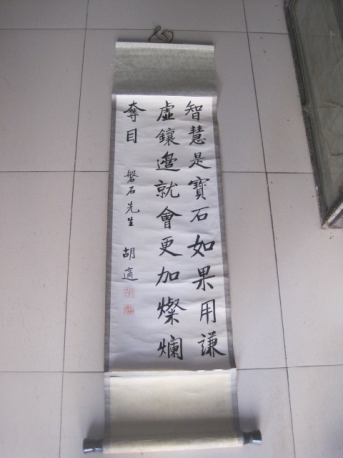 智慧是寶石如果用謙
虛鑲邊就會更加燦爛
奪目
磐石先生 胡適